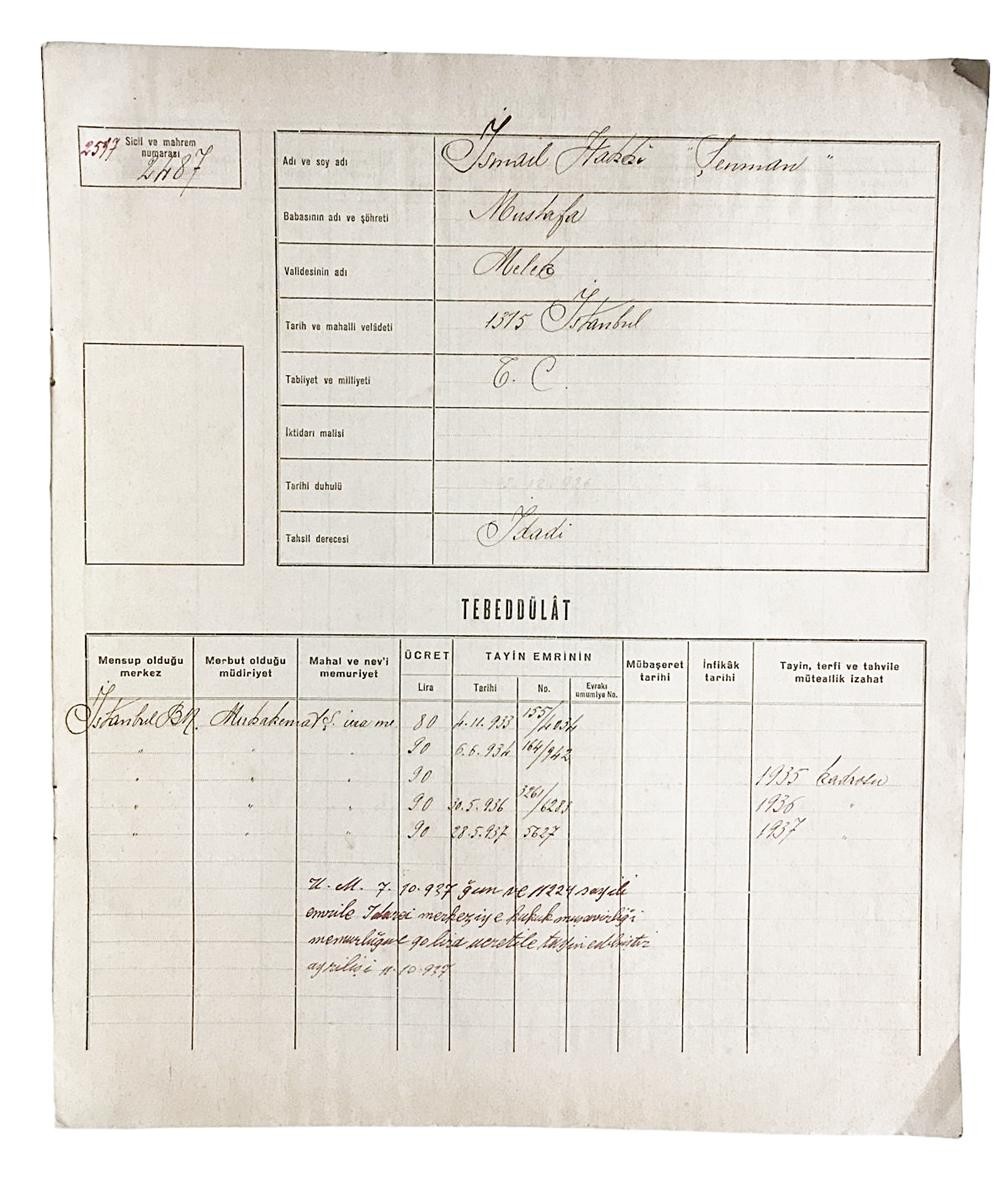 Sicil ve mahrem
numarası
2597
2487
Adı ve soy adı İsmail Hakkı "Şenman"
Babasının adı ve şöhreti Mustafa
Validesinin adı Melek
Tarih ve mahalli velâdeti 1315 İstanbul
Tabiiyet ve milliyeti T. C.
İktidarı malisi
Tarihi duhulü
Tahsil derecesi İdadi
TEBEDDÜLÂT
Mensup olduğu merkez Merbut olduğu müdiriyet Mahal ve nev'i memuriyet ÜCRET Lira TAYİN EMRİNİN Tarihi No. Evrakı umumiye No. Mübaşeret tarihi İnfikâk tarihi Tayin, terfi ve tahvile müteallik izahat
İstanbul BM. Muhakemat Ş. icra me 80 4.11.933 155/4054
" " " 90 6.6.934 164/942
" " " 90 1935 kadrosu
" " " 90 30.5.936 3261/6283 1936 "
" " " 90 28.5.937 5627 1937 "
U. M. 7.10.937 gün ve 11224 sayılı
emrile İdarei merkeziye hukuk müşavirliği
memurluğuna 90 lira ücretile tayin edilmiştir
ayrılışı 11.10.937